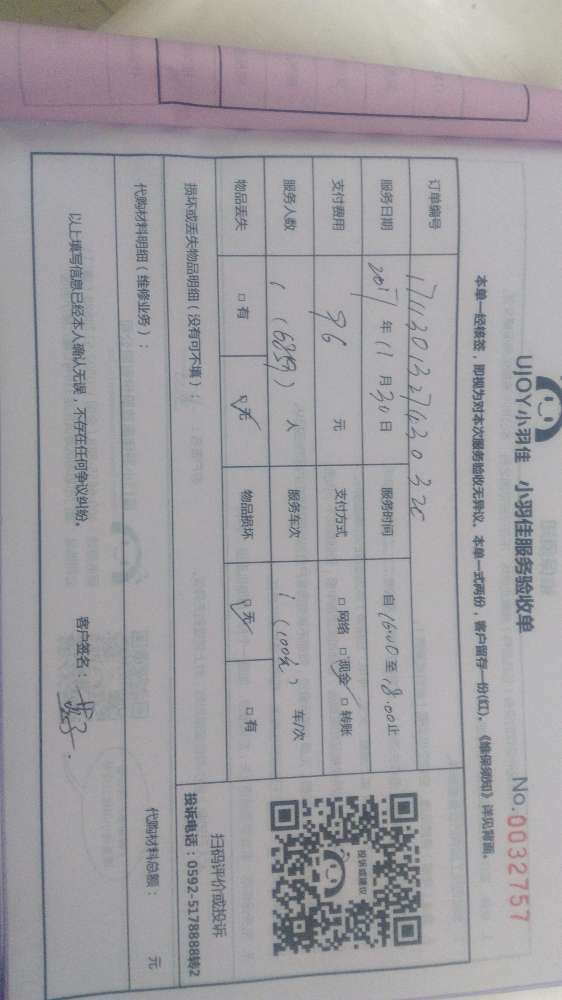 UJOY小羽佳 小羽佳服务验收单
No.0032757
本单一经接签，即视为对本次服务验收无异议。本单一式两份，客户留存一份(红)。《维保须知》详见背面。
订单编号 171130132743032
服务日期 2017 年 11 月 30 日 服务时间 自 16:00 至 18:00 止
支付费用 96 元 支付方式 □ 网络 □ 现金 □ 转账
服务人数 1 人 服务车次 1 (100元) 车/次
物品丢失 □ 有 □ 无 物品损坏 □ 无 □ 有
投诉或建议
扫码评价或投诉
投诉电话：0592-5178888转2
损坏或丢失物品明细（没有可不填）：
代购材料明细（维修业务）：
代购材料总额： 元
以上填写信息已经本人确认无误，不存在任何争议纠纷。 客户签名：